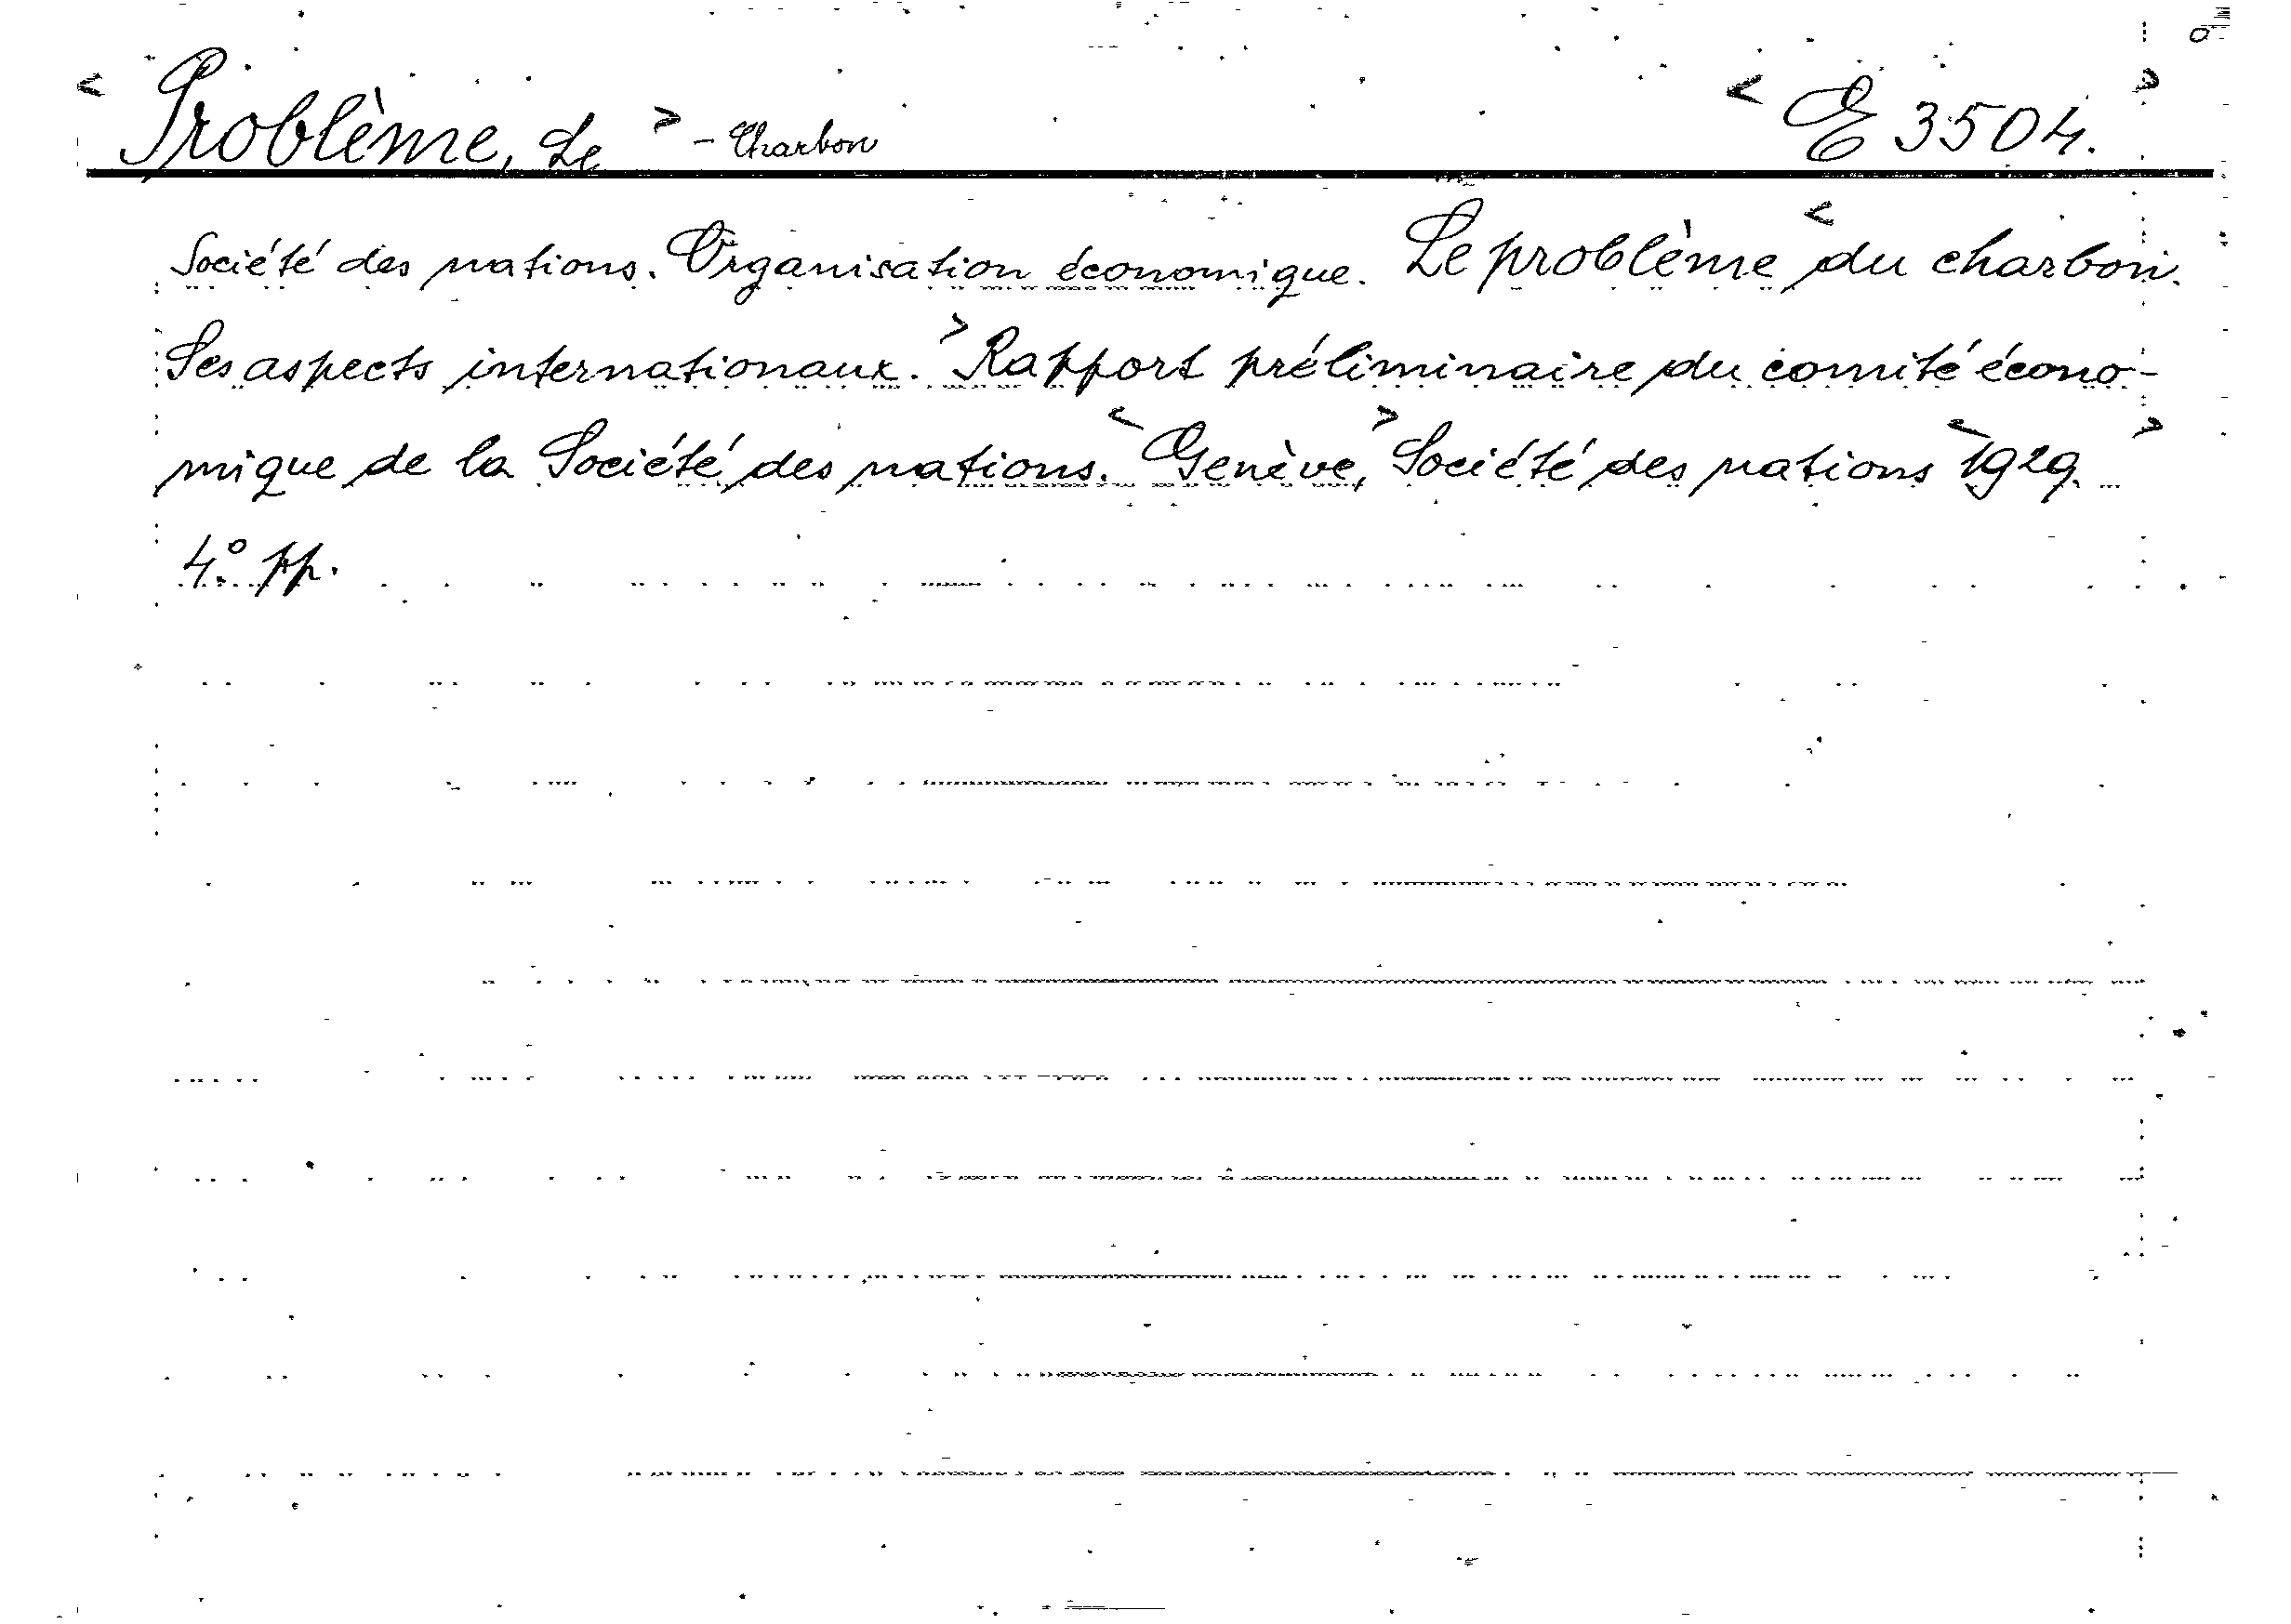 < Problème, Le > - Charbon < E 3504. >
Société des nations. Organisation économique. Le problème < du charbon.
Ses aspects internationaux. > Rapport préliminaire du comité écono-
mique de la Société des nations. < Genève, > Société des nations < 1929. >
4:o pp.